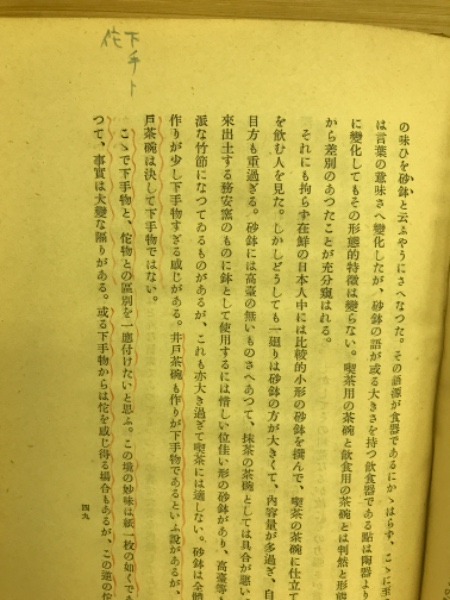 の味ひを砂鉢と云ふやうにさへなつた。その語源が食器であるにかゝはらず、こゝに至
は言葉の意味さへ變化したが、砂鉢の語が或る大きさを持つ飲食器である點は陶器より
に變化してもその形態的特徴は變らない。喫茶用の茶碗と飲食用の茶碗とは判然と形態
から差別のあつたことが充分窺はれる。
それにも拘らず在鮮の日本人中には比較的小形の砂鉢を撰んで、喫茶の茶碗に仕立て
を飲む人を見た。しかしどうしても一廻りは砂鉢の方が大きくて、内容量が多過ぎ、自
目方も重過ぎる。砂鉢には高臺の無いものさへあつて、抹茶の茶碗としては具合が惡い
來出土する務安窯のものに鉢として使用するには惜しい位佳い形の砂鉢があり、高臺等も
派な竹節になつてゐるものがあるが、これも亦大き過ぎて喫茶には適しない。砂鉢は全體
作りが少し下手物すぎる感じがある。井戸茶碗も作りが下手物であるといふ說があるが、
戸茶碗は決して下手物ではない。
こゝで下手物と、佗物との區別を一應付けたいと思ふ。この境の妙味は紙一枚の如くであ
つて、事實は大變な隔りがある。或る下手物からは佗を感じ得る場合もあるが、この道の佗
四九
下手ト